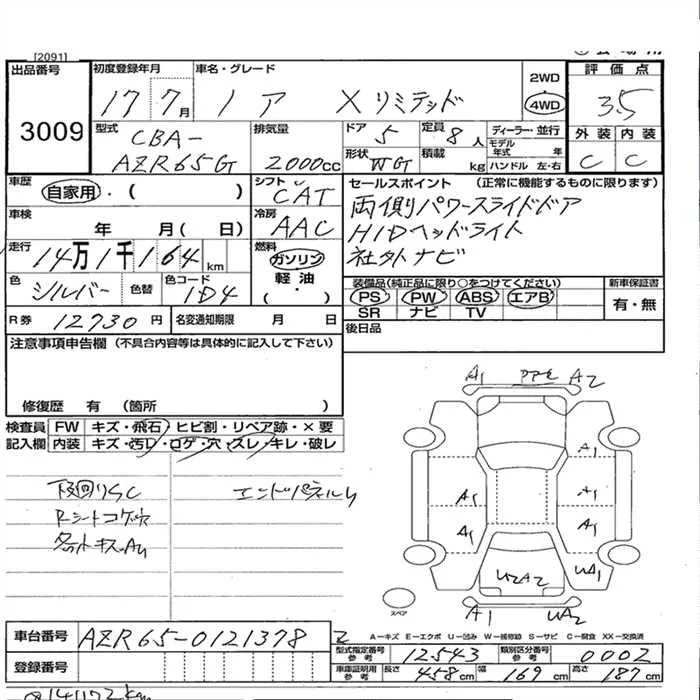 [2091]
出品番号
3009
初度登録年月
17 7月
車名・グレード
ノア X リミテッド
2WD
4WD
評価点
3.5
外装 内装
C C
型式
CBA-
AZR65G
排気量
2000cc
ドア 5
定員 8人
形状 WG
積載 kg
ディーラー・並行
モデル年式 年
ハンドル 左・右
車歴
自家用・( )
シフト
CAT
車検
年 月( 日)
冷房
AAC
走行
14万1千164km
燃料
ガソリン
軽油
( ・ )
色
シルバー
色替
色コード
1D4
セールスポイント (正常に機能するものに限ります)
両側パワースライドドア
HIDヘッドライト
社外ナビ
装備品(純正品に限り○をつけてください)
PS PW ABS エアB
SR ナビ TV
新車保証書
有・無
R券 12730円
名変通知期限 月 日
後日品
注意事項申告欄 (不具合内容等は具体的に記入して下さい)
修復歴 有 (箇所 )
検査員記入欄
FW キズ・飛石・ヒビ割・リペア跡・×要
内装 キズ・汚レ・コゲ・穴・スレ・キレ・破レ
下回りSC
Rシートコゲ穴
エンドパネルU
A1 A2
A1
A1 A1
A1 A1
UA1
U2A2
A1 UA2
スペア
A-キズ E-エクボ U-凹み W-補修跡 S-サビ C-腐食 XX-交換済
車台番号 AZR65-0121378
登録番号
型式指定番号 参考 12543
類別区分番号 参考 0002
車庫証明用 参考 長さ 458cm 幅 169cm 高さ 187cm